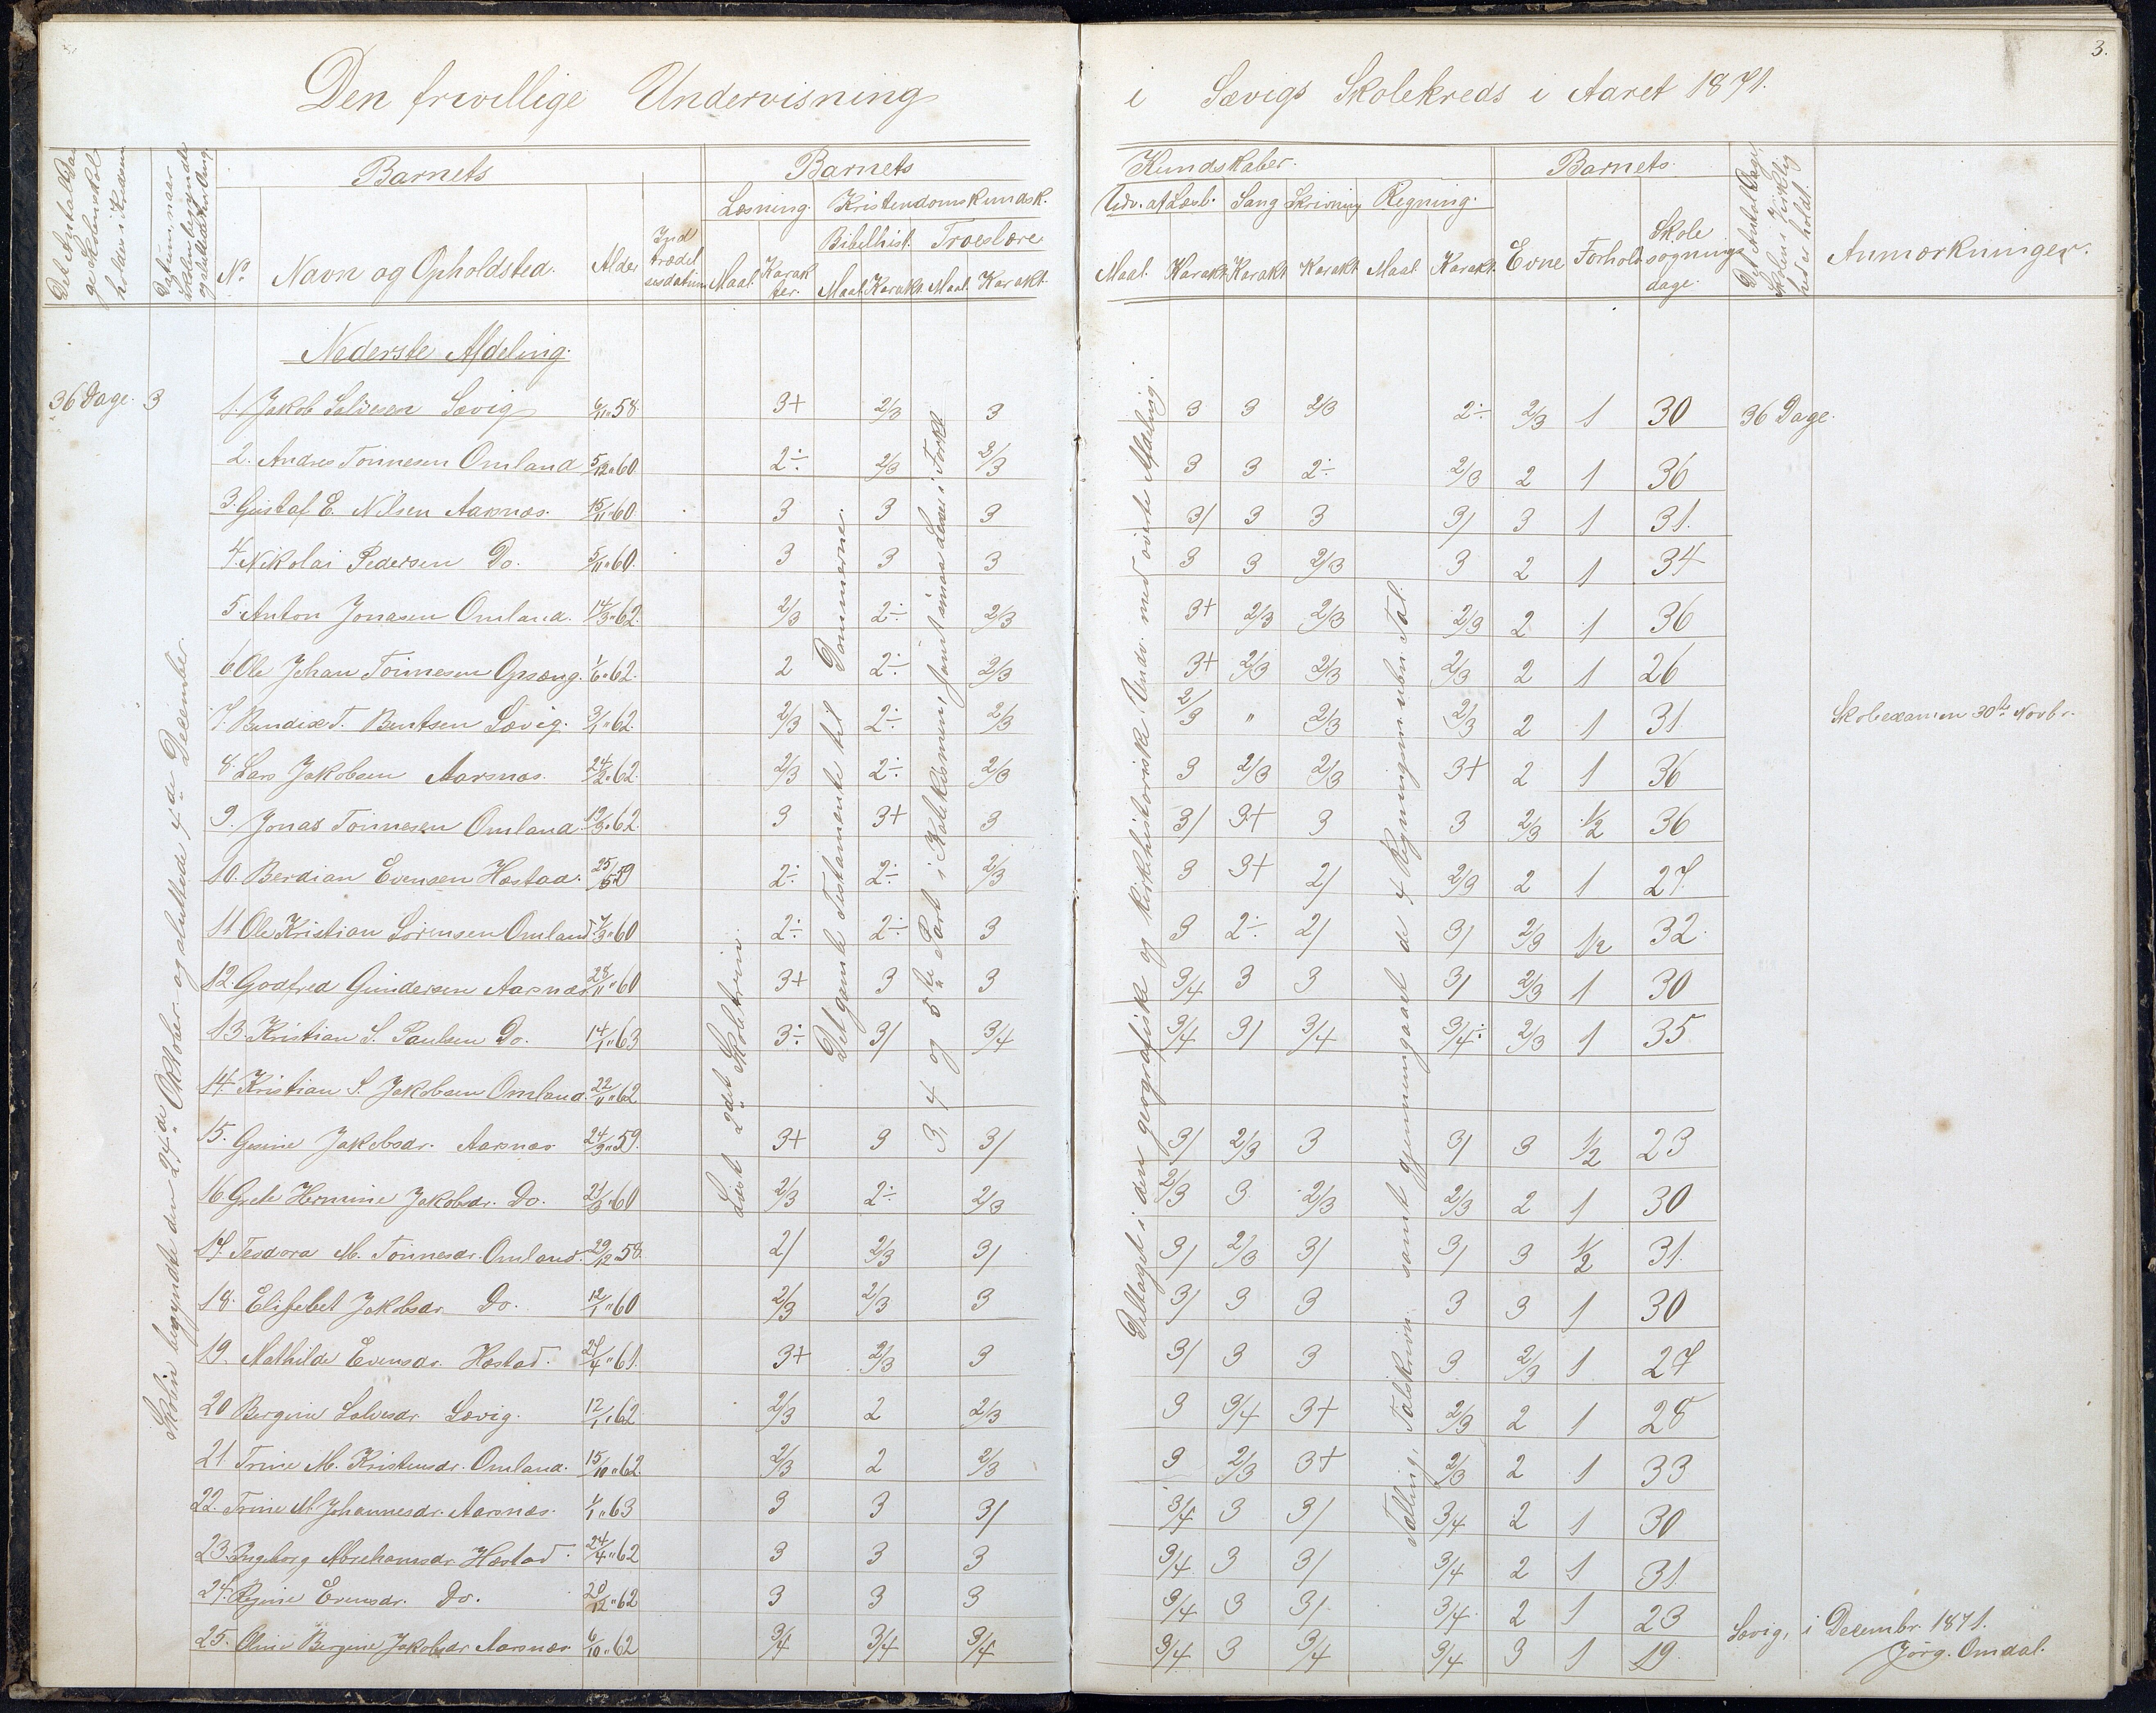 3.
Den frivillige Undervisning i Sævigs Skolekreds i Aaret 1871.
Det Antal Dage Skolen skal holdes i Kredsen
Datum, naar Skolen begyndte og sluttedes hver Gang
Barnets
No
Navn og Opholdsted.
Alder
Indtrædelsesdatum
Barnets Kundskaber.
Læsning. Kristendomskundsk. Udv. af Læseb. Sang Skrivning Regning.
Bibelhist. Troeslære
Maal. Karakter. Maal. Karakt. Maal. Karakt. Maal. Karakt. Karakt. Karakt. Maal. Karakt.
Barnets
Evne Forhold Skolesøgningsdage.
Det Antal Dage, Skolen i Virkelighed er holdt.
Anmærkninger.
Nederste Afdeling.
36 Dage. 3
1. Jakob Salvesen Sævig 6/11 58. 3+ 2/3 3 3 3 2/3 2÷ 2/3 1 30 36 Dage.
2. Andres Tønnesen Omland 5/12 60 2÷ 2/3 2/3 3 3 2÷ 2/3 2 1 36
3. Gustaf E. Nilsen Aarsnæs. 15/11 60 3 3 3 3/ 3 3 3/ 3 1 31.
4. Nikolai Pedersen Do. 5/11 60. 3 3 3 3 3 2/3 3 2 1 34
5. Anton Jonasen Omland. 14/3 62. 2/3 2÷ 2/3 3+ 2/3 2/3 2/3 2 1 36
6. Ole Johan Tønnesen Opsæng. 1/6 62. 2 2÷ 2/3 3+ 2/3 2/3 2/3 2 1 26
7. Bendix T. Bentsen Sævig. 3/1 62. 2/3 2÷ 2/3 2/3 " 2/3 2/3 2 1 31. Skoleexamen 30te Novbr.
8. Lars Jakobsen Aarsnæs. 24/2 62. 2/3 2÷ 2/3 3 2/3 2/3 3+ 2 1 36
9. Jonas Tønnesen Omland. 19/3 62. 3 3+ 3 3/ 3+ 3 3 2/3 1/2 36
10. Berdian Evensen Hæstad. 25/5 59 2÷ 2÷ 2/3 3 3+ 2/ 2/3 2 1 27.
11 Ole Kristian Sørensen Omland. 7/3 60 2÷ 2÷ 3 3 2÷ 2/ 3/ 2/3 1/2 32.
12. Godtfred Gundersen Aarsnæs 28/11 60 3+ 3 3 3/4 3 3 3/ 2/3 1 30
13. Kristian S. Paulsen Do. 14/1 63 3÷ 3/ 3/4 3/4 3/ 3/4 3/4÷ 2/3 1 35
14 Kristian S. Jakobsen Omland. 22/11 62
15. Gesine Jakobsdr. Aarsnæs 24/9 59. 3+ 3 3/ 3/ 2/3 3 3/ 3 1/2 23
16 Grete Hermine Jakobsdr. Do. 21/3 60 2/3 2÷ 2/3 2/3 3 2/3 2/3 2 1 30
17 Teodora M. Tønnesdr. Omland. 29/12 58. 2/ 2/3 3/ 3/ 2/3 3/ 3/ 3 1/2 31.
18. Elisebet Jakobsdr Do. 12/1 60 2/3 2/3 3 3/ 3 3 3 3 1 30
19. Mathilde Evensdr. Hæstad. 27/4 61. 3+ 2/3 3 3/ 3 3 3 2/3 1 27
20 Bergine Salvesdr. Sævig. 12/1 62. 2/3 2 2/3 3 3/4 3+ 2/3 2 1 28
21. Trine M. Kristensdr. Omland. 15/10 62. 2/3 2 2/3 3 2/3 3+ 2/3 2 1 33
22. Trine M. Johannesdr. Aarsnæs. 1/1 63 3 3 3/ 3/4 3 3/ 3/4 2 1 30
23. Ingeborg Abrahamsdr Hæstad. 24/4 62 3 3 3 3/4 3 3/ 3/4 2 1 31.
24. Regine Evensdr. Do. 28/12 62 3 3 3 3/4 3 3/ 3/4 2 1 23
25. Oline Bergine Jakobsdr Aarsnæs 6/10 62 3/4 3/4 3/4 3/4 3 3/4 3/4 3 1 19
Skolen begyndte den 24de Oktober og sluttede 4de December.
Læst 2det Skoletrin.
Det gamle Testamente til Dommerne.
3, 4 og 5te Part i Katekismen, samt smaa Læse i Forkl
Deltaget i den geografiske og kirkehistoriske Underv. med øverste Afdeling.
Tælling, Talskrivn. samt gjennemgaaet de 4 Regningsm. ubn. Tal.
Sævig, i Decembr. 1871.
Jørg. Omdal.